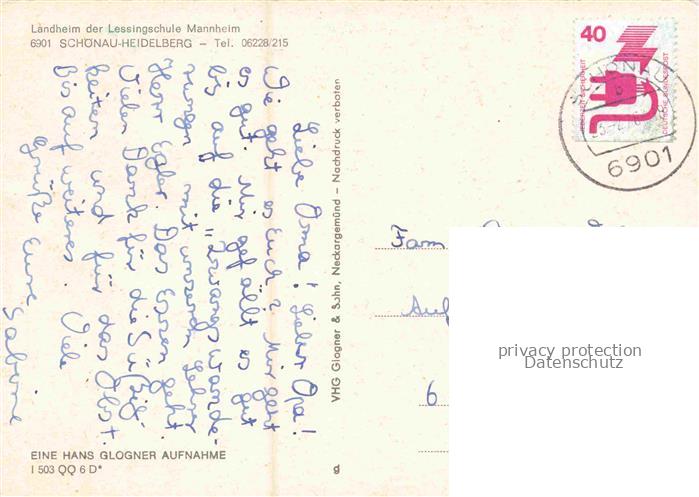 Landheim der Lessingschule Mannheim
6901 SCHÖNAU-HEIDELBERG – Tel. 06228/215
Liebe Oma! Lieber Opa!
Wie geht es Euch? Mir geht
es gut. Mir gefällt es gut
bis auf die "Zwangswande-
rungen" mit unserem Lehrer
Herr Egler. Das Essen geht.
Vielen Dank für die Süßig-
keiten und für das Obst.
Bis auf weiteres. Viele
Grüße Eure
Sabine
EINE HANS GLOGNER AUFNAHME
I 503 QQ 6 D*
VHG Glogner & Sohn, Neckargemünd – Nachdruck verboten
g
40
JEDERZEIT SICHERHEIT
DEUTSCHE BUNDESPOST
SCHÖNAU
b
6901
Fam
Auf
6
privacy protection
Datenschutz